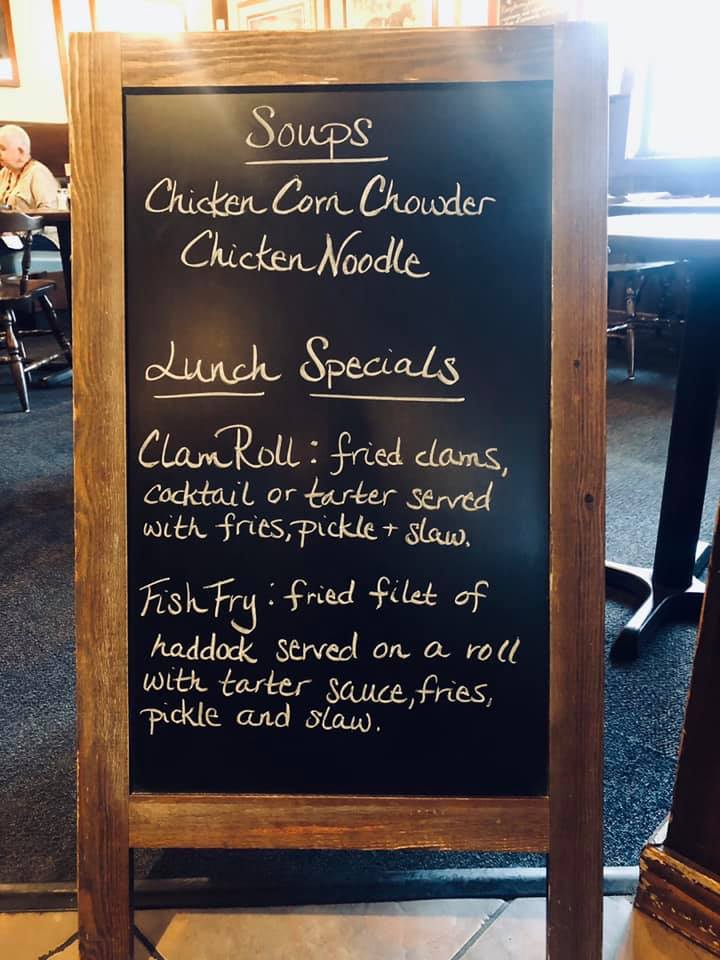 Soups
Chicken Corn Chowder
Chicken Noodle
Lunch Specials
Clam Roll: fried clams,
cocktail or tarter served
with fries, pickle + slaw.
Fish Fry: fried filet of
haddock served on a roll
with tarter sauce, fries,
pickle and slaw.